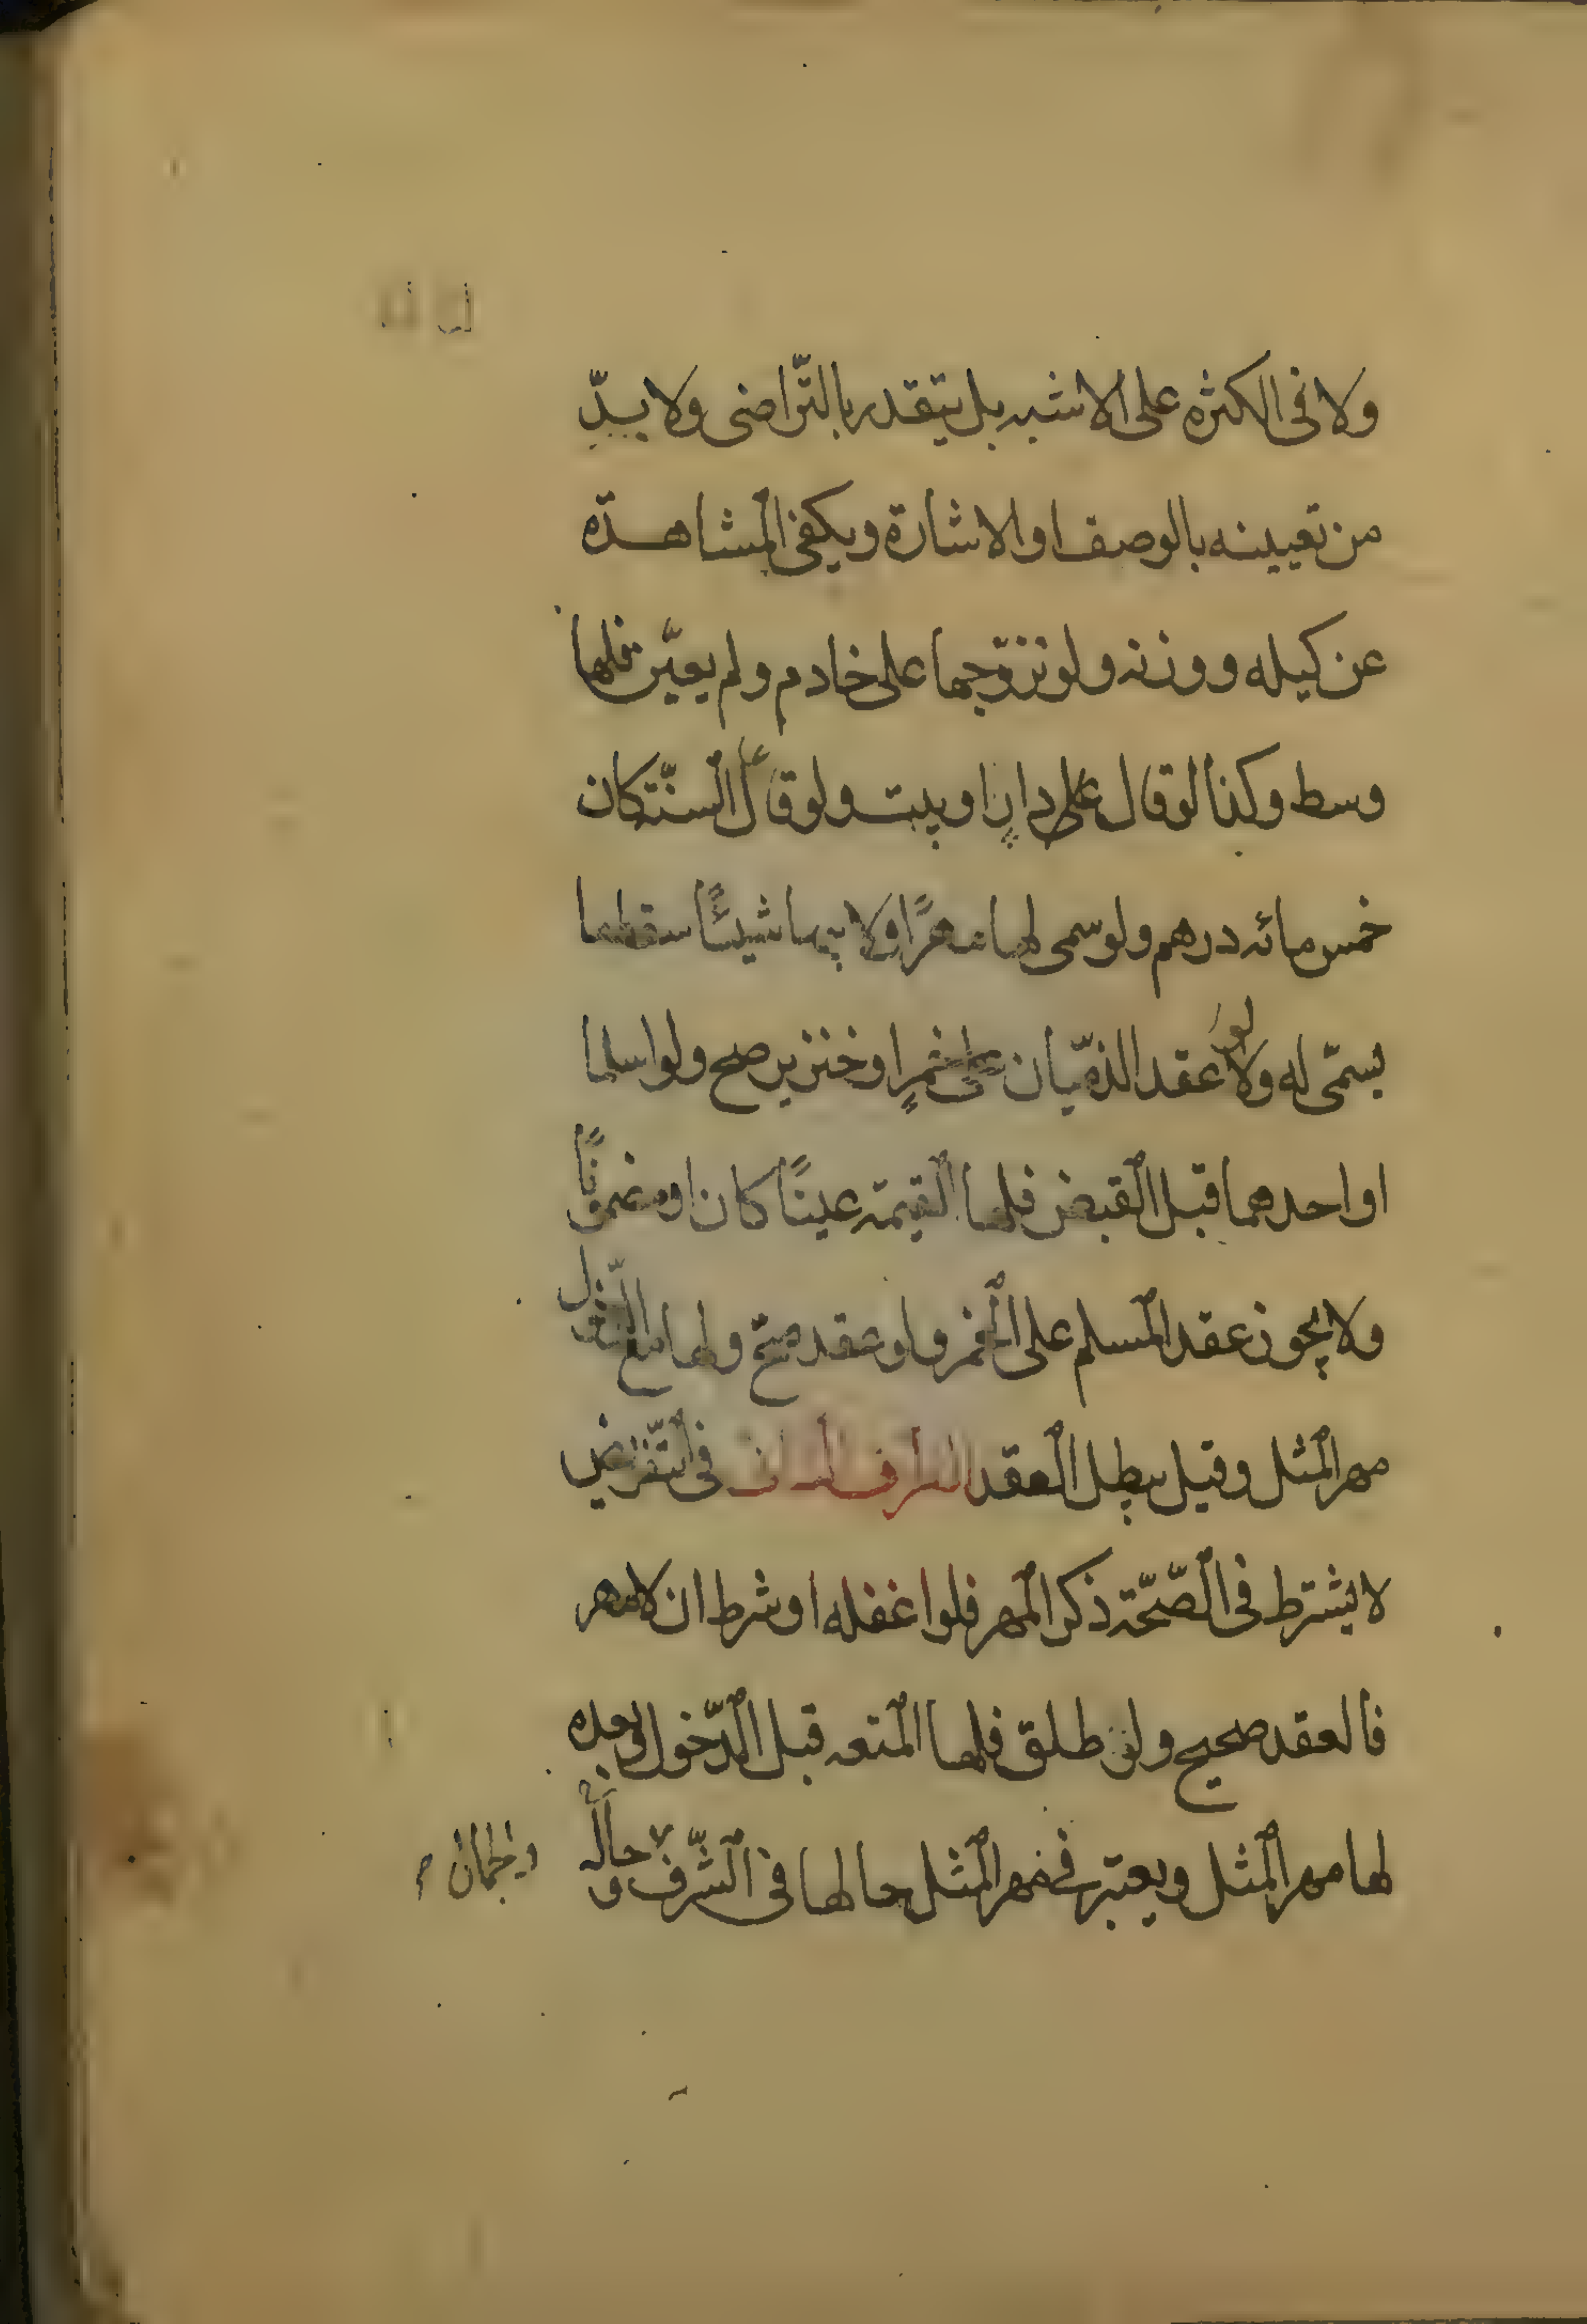 ولا فى الكثره على الاشبه بل يتقدر بالتّراضى ولا بدّ
من تعيينه بالوصف او الاشارة ويكفى المشاهدة
عن كيله ووزنه ولو تزوّجها على خادم ولم يعيّن فلها
وسط وكذا لو قال على دارٍ او بيت ولو قال على السنّة كان
خمس مائه درهم ولو سمى لها مهرًا ولابيها شيئًا سقط ما
يسمّى له ولو عقد الذمّيان على خمرٍ او خنزير صح ولو اسلما
او احدهما قبل القبض فلها القيمة عينًا كان او مضمونًا
ولا يجوز عقد المسلم على الخمر ولو عقد صحّ ولها مع الدّخول
مهر المثل وقيل يبطل العقد الطرف الثانى فى التّفويض
لا يشترط فى الصّحّة ذكر المهر فلو اغفله او شرط ان لا مهر
فالعقد صحيح ولو طلق فلها المتعه قبل الدّخول وبعده
لها مهر المثل ويعتبر فى مهر المثل حالها فى الشّرف و
والجمال